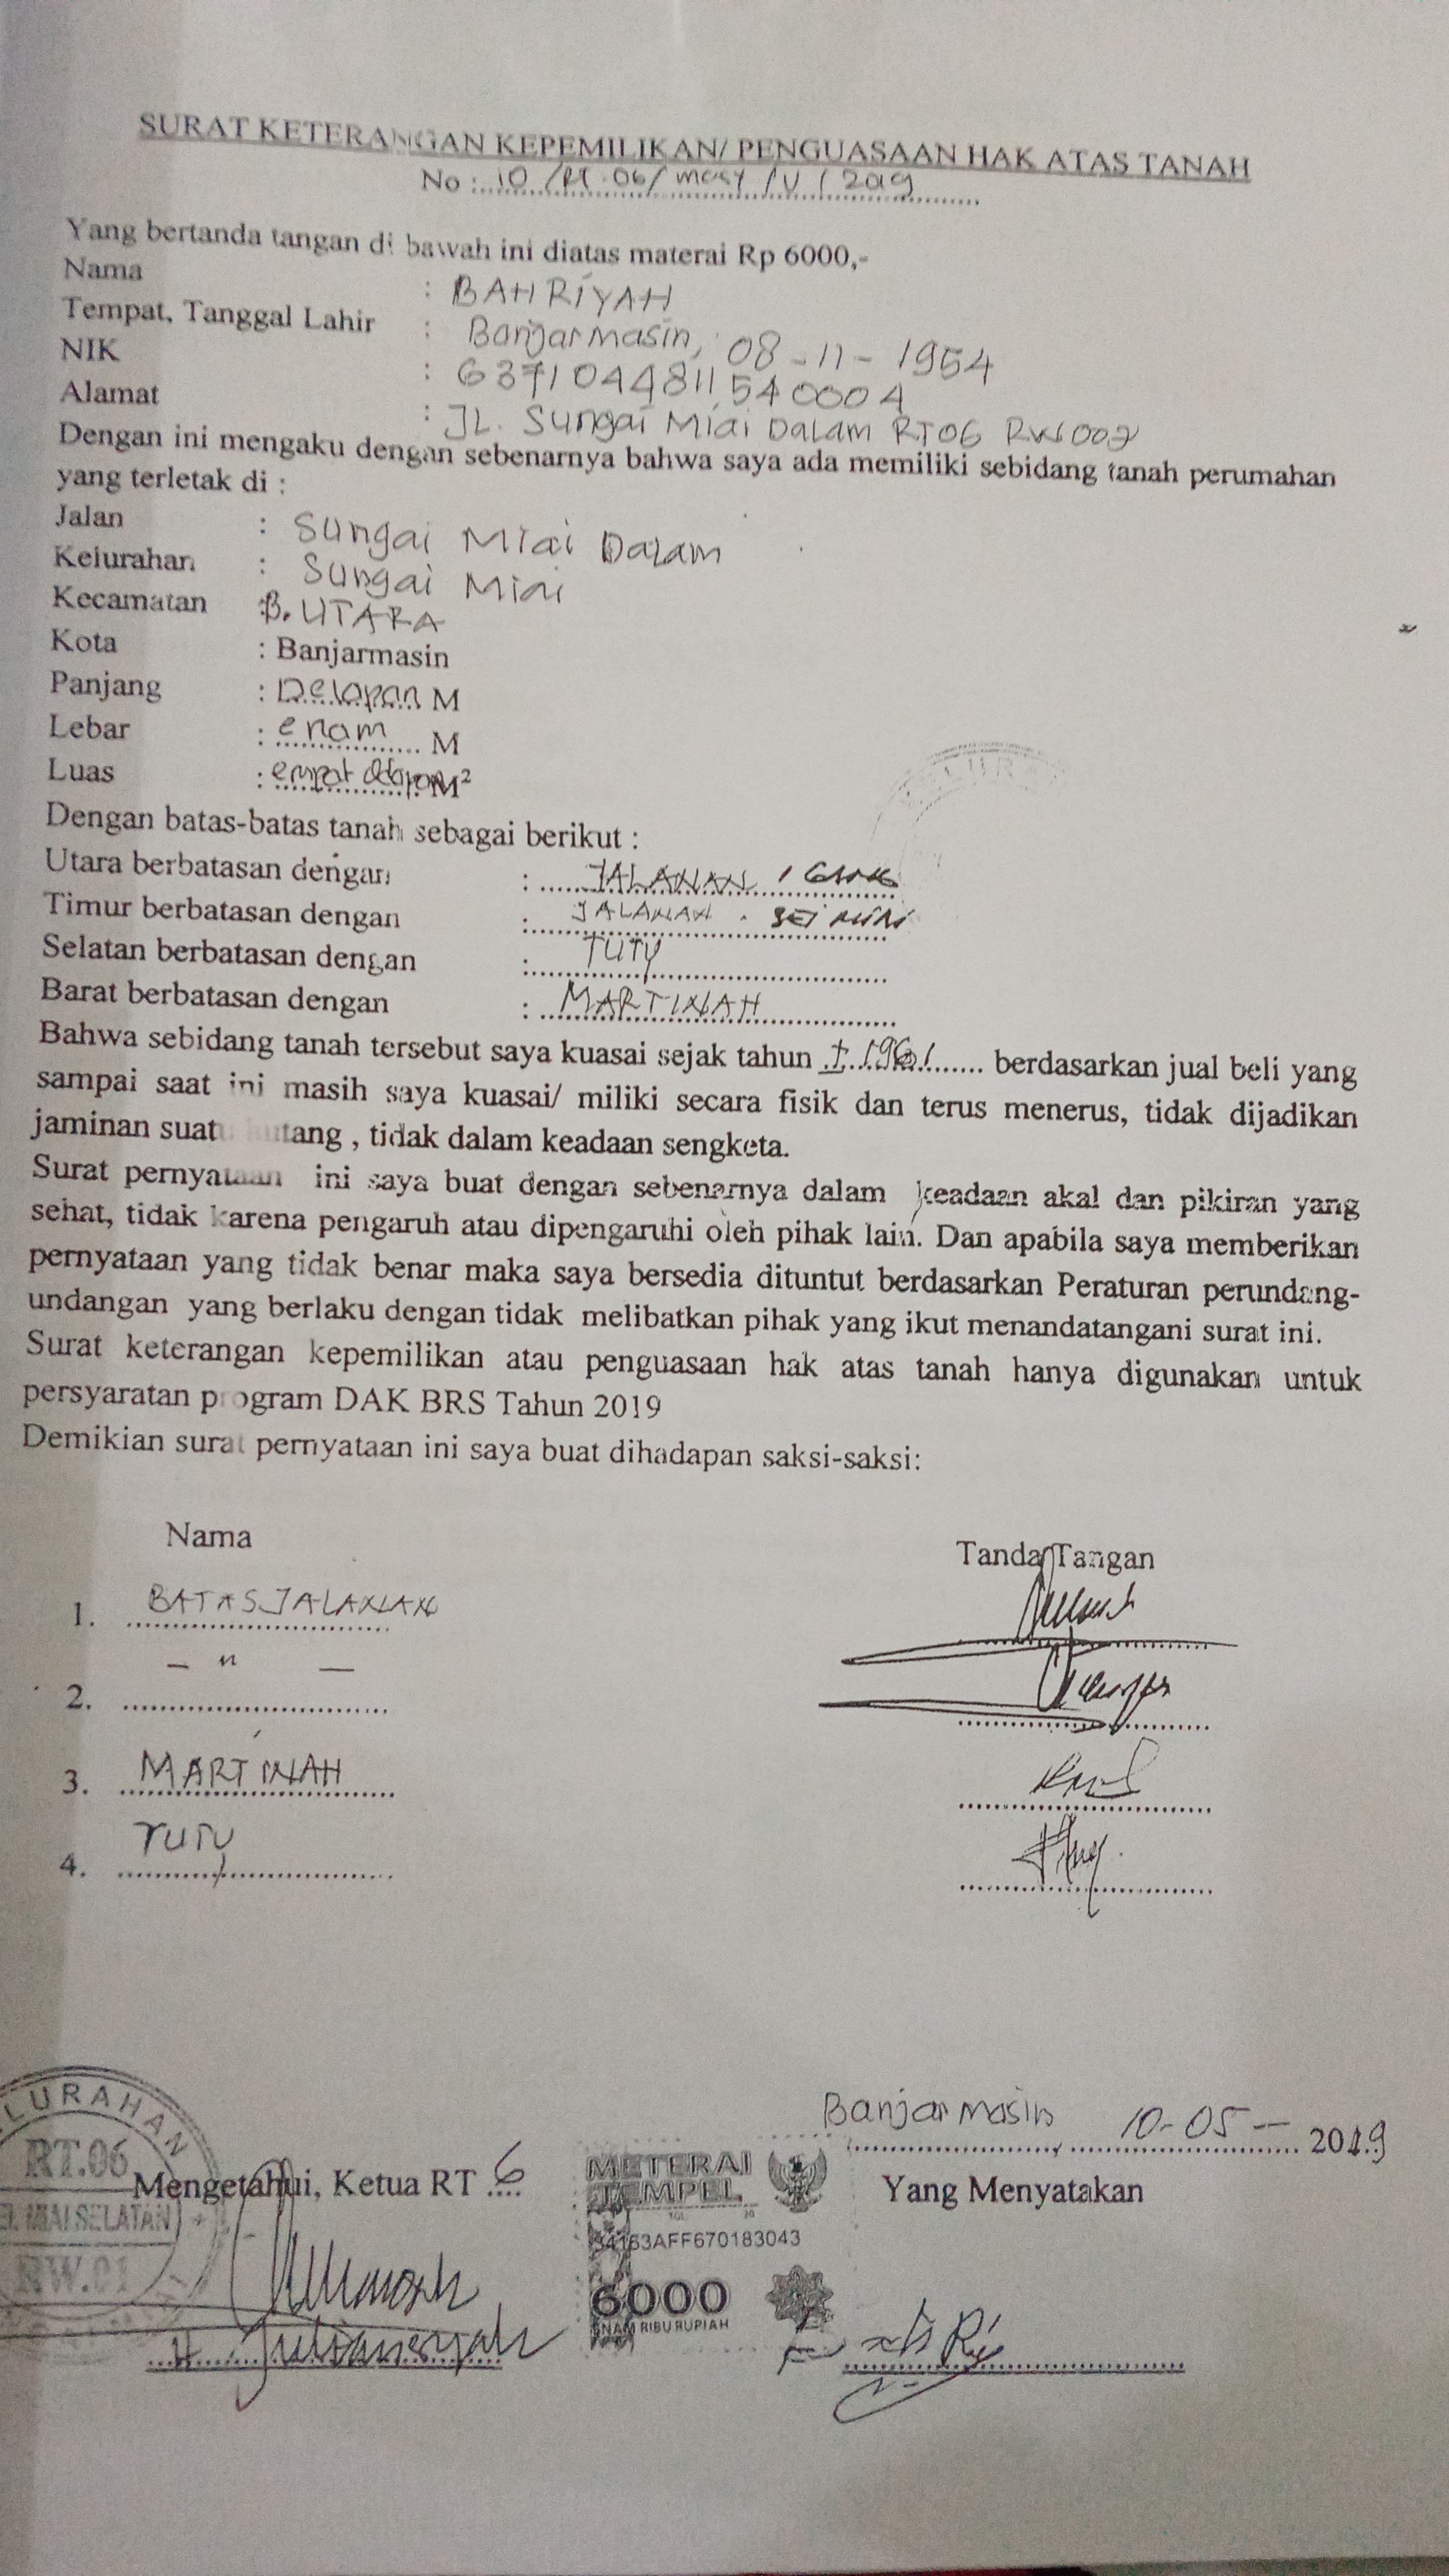 SURAT KETERANGAN KEPEMILIKAN/ PENGUASAAN HAK ATAS TANAH
No : 10 /Rt. 06/ mosy /V / 2019
Yang bertanda tangan di bawah ini diatas materai Rp 6000,-
Nama : BAHRIYAH
Tempat, Tanggal Lahir : Banjarmasin, 08 - 11 - 1954
NIK : 6371044811540004
Alamat : JL. Sungai Miai Dalam RT06 RW002
Dengan ini mengaku dengan sebenarnya bahwa saya ada memiliki sebidang tanah perumahan
yang terletak di :
Jalan : Sungai Miai Dalam
Kelurahan : Sungai Miai
Kecamatan : B. UTARA
Kota : Banjarmasin
Panjang : Delapan M
Lebar : enam M
Luas : empat delapan M²
Dengan batas-batas tanah sebagai berikut :
Utara berbatasan dengan : JALANAN / GANG
Timur berbatasan dengan : JALANAN . SEI MIAI
Selatan berbatasan dengan : TUTY
Barat berbatasan dengan : MARTINAH
Bahwa sebidang tanah tersebut saya kuasai sejak tahun ± 1961 berdasarkan jual beli yang
sampai saat ini masih saya kuasai/ miliki secara fisik dan terus menerus, tidak dijadikan
jaminan suatu hutang , tidak dalam keadaan sengketa.
Surat pernyataan ini saya buat dengan sebenarnya dalam keadaan akal dan pikiran yang
sehat, tidak karena pengaruh atau dipengaruhi oleh pihak lain. Dan apabila saya memberikan
pernyataan yang tidak benar maka saya bersedia dituntut berdasarkan Peraturan perundang-
undangan yang berlaku dengan tidak melibatkan pihak yang ikut menandatangani surat ini.
Surat keterangan kepemilikan atau penguasaan hak atas tanah hanya digunakan untuk
persyaratan program DAK BRS Tahun 2019
Demikian surat pernyataan ini saya buat dihadapan saksi-saksi:
Nama Tanda Tangan
1. BATAS JALANAN
2. – " –
3. MARTINAH
4. TUTY
Banjarmasin 10-05 - 2019
LURAHAN
RT.06
MIAI SELATAN
RW.01
Mengetahui, Ketua RT 6
METERAI
TEMPEL
AFF670183043
6000
ENAM RIBU RUPIAH
Yang Menyatakan